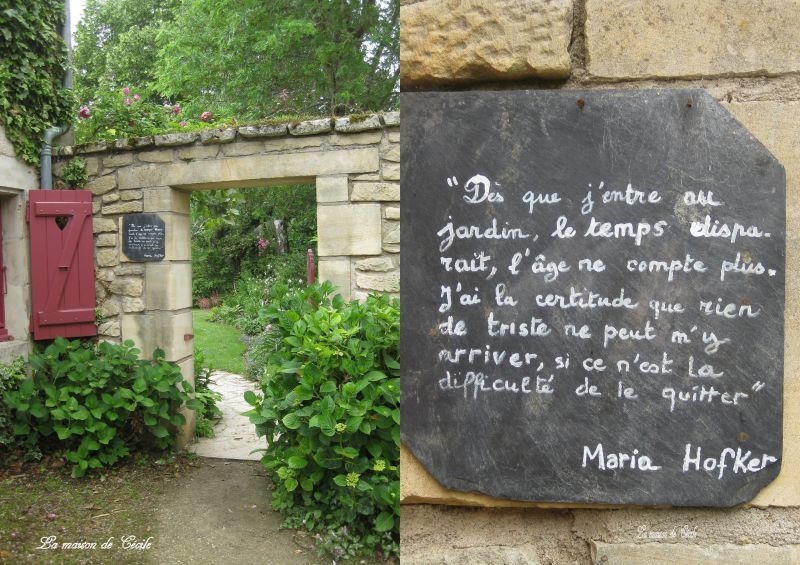 "Dès que j'entre au
jardin, le temps dispa-
rait, l'âge ne compte plus.
J'ai la certitude que rien
de triste ne peut m'y
arriver, si ce n'est la
difficulté de le quitter"
Maria Hofker
La maison de Cécile
La maison de Cécile